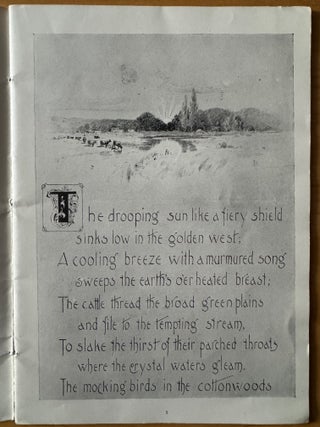 The drooping sun like a fiery shield
sinks low in the golden west;
A cooling breeze with a murmured song
sweeps the earth's o'er heated breast;
The cattle thread the broad green plains
and file to the tempting stream,
To slake the thirst of their parched throats
where the crystal waters gleam.
The mocking birds in the cottonwoods